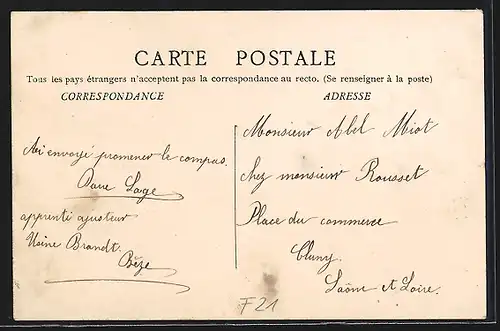 CARTE POSTALE
Tous les pays étrangers n'acceptent pas la correspondance au recto. (Se renseigner à la poste)
CORRESPONDANCE
Ai envoyé promener le compas.
Lage
apprenti ajusteur
Usine Brandt.
Bèze
ADRESSE
Monsieur Abel Miot
chez monsieur Rousset
Place du commerce
Cluny.
Saône et Loire.
F21